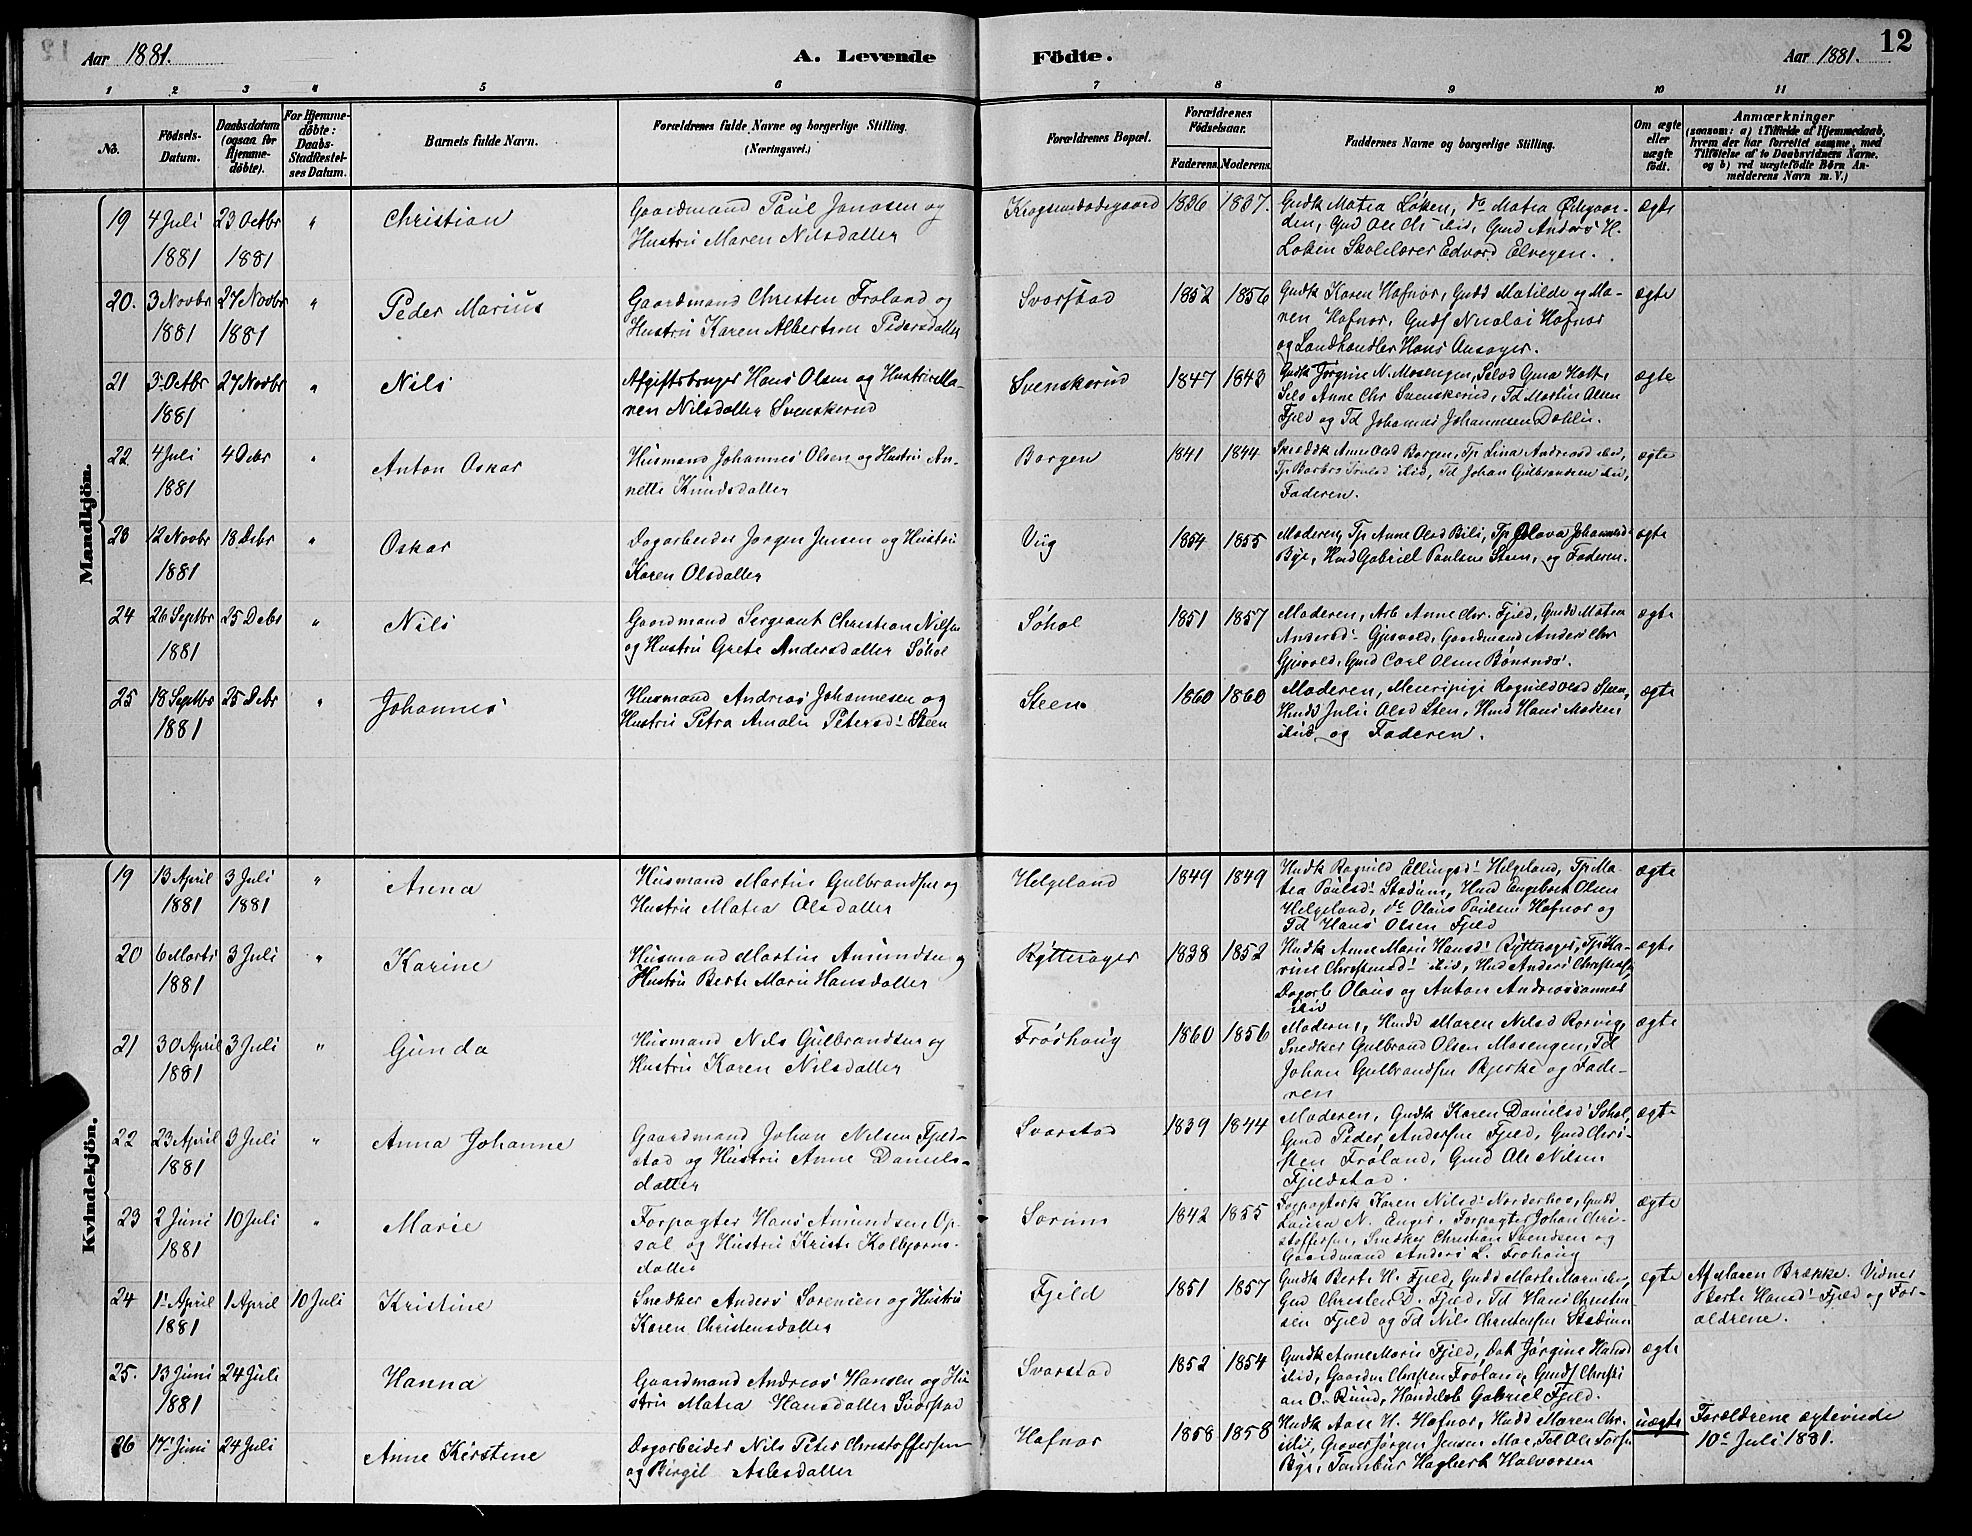 Aar 1881.
A. Levende
Födte.
Aar 1881.
12
1 2 3 4 5 6 7 8 9 10 11
No.
Födsels-
Datum.
Daabsdatum
(ogsaa for
Hjemme-
döbte).
For Hjemme-
döbte:
Daabs-
Stadfæstel-
ses Datum.
Barnets fulde Navn.
Forældrenes fulde Navne og borgerlige Stilling.
(Næringsvei.)
Forældrenes Bopæl.
Forældrenes
Födselsaar.
Faderens. Moderens.
Faddernes Navne og borgerlige Stilling.
Om ægte
eller
uægte
födt.
Anmærkninger
(saasom: a) i Tilfælde af Hjemmedaab,
hvem der har forrettet samme, med
Tilföielse af to Daabsvidners Navne,
og b) ved uægtefödte Börn An-
melderens Navn m. V.)
Mandkjön.
19 4 Juli 1881 23 Octbr 1881 " Christian
Gaardmand Paul Janasen og
Hustru Maren Nilsdatter
Kragsenbødegaard 1836 1837.
Gudk Matea Løken, do Matea Ødegaar-
den, Gmd Ole Chr ibid, Gmd Anders H.
Løken Skolelærer Edvard Elvegen.
ægte
20. 3 Novbr 1881 27 Novbr 1881 " Peder Marius
Gaardmand Christen Frøland og
Hustru Karen Albertine Pedersdatter
Svarstad 1852 1856
Gudk Karen Hafnor, Gudd Matilde og Ma-
ren Hafnor, Guds Nicolai Hafnor
og Landhandler Hans Onsager.
ægte
21 3 Octbr 1881 27 Novbr " Nils
Afgiftsbruger Hans Olsen og Hustru Ma-
ren Nilsdatter Svenskerud
Svenskerud 1847 1843
Gudk Jørgine N. Mosengen,
Anne Chr Svenskerud, Td Martin Olsen
Fjeld og Td Johannes Johannesen Dahlii.
ægte
22 4 Juli 1881 4 Debr " Anton Oskar
Husmand Johannes Olsen og Hustru An-
nette Knudsdatter
Borgen 1841 1844
Anne Olsd Borgen, Tp Lina Andreasd ibid,
ibid, Td Johan Gulbrandsen ibid,
Faderen.
ægte
23 12 Novbr 1881 18 Debr " Oskar
Dagarbeider Jørgen Jensen og Hustru
Karen Olsdatter
Viig 1854 1855
Moderen, Tp Anne Olsd Bili, Tp Olava Johannesd
Bye, Hmd Gabriel Paulsen Steen, og Faderen.
ægte
24 26 Septbr 1881 25 Debr " Nils
Gaardmand Sergeant Christian Nilsen
og Hustru Grete Andersdatter Søhol
Søhol 1851 1857
Moderen, Arb Anne Chr. Fjeld, Gudd Matea
Andersd Gjesvold, Gaardmand Anders Chr
Gjesvold, Gmd Carl Olsen Bønsnæs.
ægte
25 18 Septbr 1881 25 Debr " Johannes
Husmand Andreas Johannesen og
Hustru Petra Amalie Petersd: Steen
Steen 1860 1860
Moderen, Meieripige Ragnild Olsd Steen,
Hmdd Julie Olsd Sten, Hmd Hans Madsen
ibid og Faderen.
ægte
Kvindekjön.
19 13 April 1881 3 Juli 1881 " Anna
Husmand Martin Gulbrandsen og
Hustru Matea Olsdatter
Helgeland 1849 1849
Hudk Ragnild Ellingsd: Helgeland, Tp Ma-
tea Paulsd: Stadum, Hmd Engebret Olsen
Helgeland, do Olaus Paulsen Hafnor og
Td Hans Olsen Fjeld
ægte
20 6 Marts 1881 3 Juli " Karine
Husmand Martin Amundsen og
Hustru Berte Marie Hansdatter
Ryttersager 1838 1852
Hudk Anne Marie Hansd: Ryttersager, Tp Ka-
rine Christensd: ibid, Hmd Anders Christiansen,
Dagarb Olaus og Anton
ibid
ægte
21 30 April 1881 3 Juli " Gunda
Husmand Nils Gulbrandsen og
Hustru Karen Nilsdatter
Frøshaug 1860 1856
Moderen, Hmdd Maren Nilsd Rørvig,
Snedker Gulbrand Olsen Mosengen, Td
Johan Gulbrandsen Bjerke og Fade-
ren
ægte
22 23 April 1881 3 Juli " Anna Johanne
Gaardmand Johan Nilsen Fjeld-
stad og Hustru Anne Daniels-
datter
Svarstad 1839 1844
Moderen, Gudk Karen Danielsd Søhol,
Gmd Peder Andersen Fjeld, Gmd Chri-
sten Frøland, Gmd Ole Nilsen
Fjeldstad.
ægte
23 2 Juni 1881 10 Juli " Marie
Forpagter Hans Amundsen Op-
sal og Hustru Kristi Kolbjørns-
datter
Sørum 1842 1855
Forpagterk Karen Nilsd: Norderhov, Gudd
Laura N. Enger, Forpagter Johan Chri-
stoffersen, Snedker Christian Svendsen og
Gaardmand Anders L. Frøhaug
ægte
24 1 April 1881 1 April 10 Juli Kristine
Snedker Anders Sørensen og Hustru
Karen Christensdatter
Fjeld 1851 1857
Gudk Berte H. Fjeld, Gudd Marte Marie ibid,
Gmd Christen D. Fjeld, Td Hans Christen-
sen Fjeld og Td Nils Christensen Stadum
ægte
Af Maren Brække. Vidner
Berte Hansd: Fjeld og For-
ældrene.
25. 13 Juni 1881 24 Juli Hanna
Gaardmand Andreas Hansen og Hu-
stru Matea Hansdatter Svarstad
Svarstad 1852 1854
Gudk Anne Marie Fjeld, Dat Jørgine Hansd
ibid, Gaardm Christen Frøland, Guds Christi
an O. Rund, Handelsb Gabriel Fjeld.
ægte
26 17 Juni 24 Juli Anne Kirstine
Dagarbeider Nils Peter Christoffersen
og Birgit Aslesdatter
Hafnor 1858 1858
Hudk Aase H. Hafnor, Hudd Maren Chr.
ibid, Graver Jørgen Jensen Moe, Td Ole
Bye, Tambur Hagbert Halvorsen
uægte
Forældrene ægteviede
10de Juli 1881.